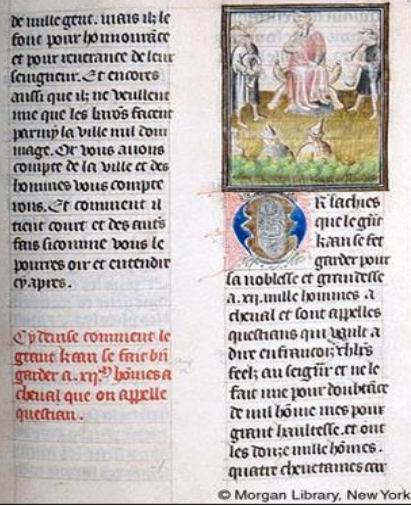 de mille gent. mais ilz le
font pour honnourance
et pour reuerance de leur
seingneur. Et encores
aussi que ilz ne veullent
mie que les larrons facent
parmy la ville nul dom
mage. Or vous auons
compte de la ville et des
hommes vous compte
rons. Et comment il
tient court et des autres
fais si comme vous le
pourres oir et entendre
cy apres.
Cy deuise comment le
grant kaan se fait bñ
garder a .xij. hõmes a
cheual que on appelle
questian.
Or sachies
que le gñt
kaan se fet
garder pour
la noblesse et grandesse
a .xij. mille hommes a
cheual et sont appelles
questians qui vault a
dire en francoiz chlrs
feelz au seignr et ne le
fait mie pour doubtãce
de nul hõme mes pour
grant haultesse. et ont
les douze mille hõmes.
quatre cheuetaines car
© Morgan Library, New York